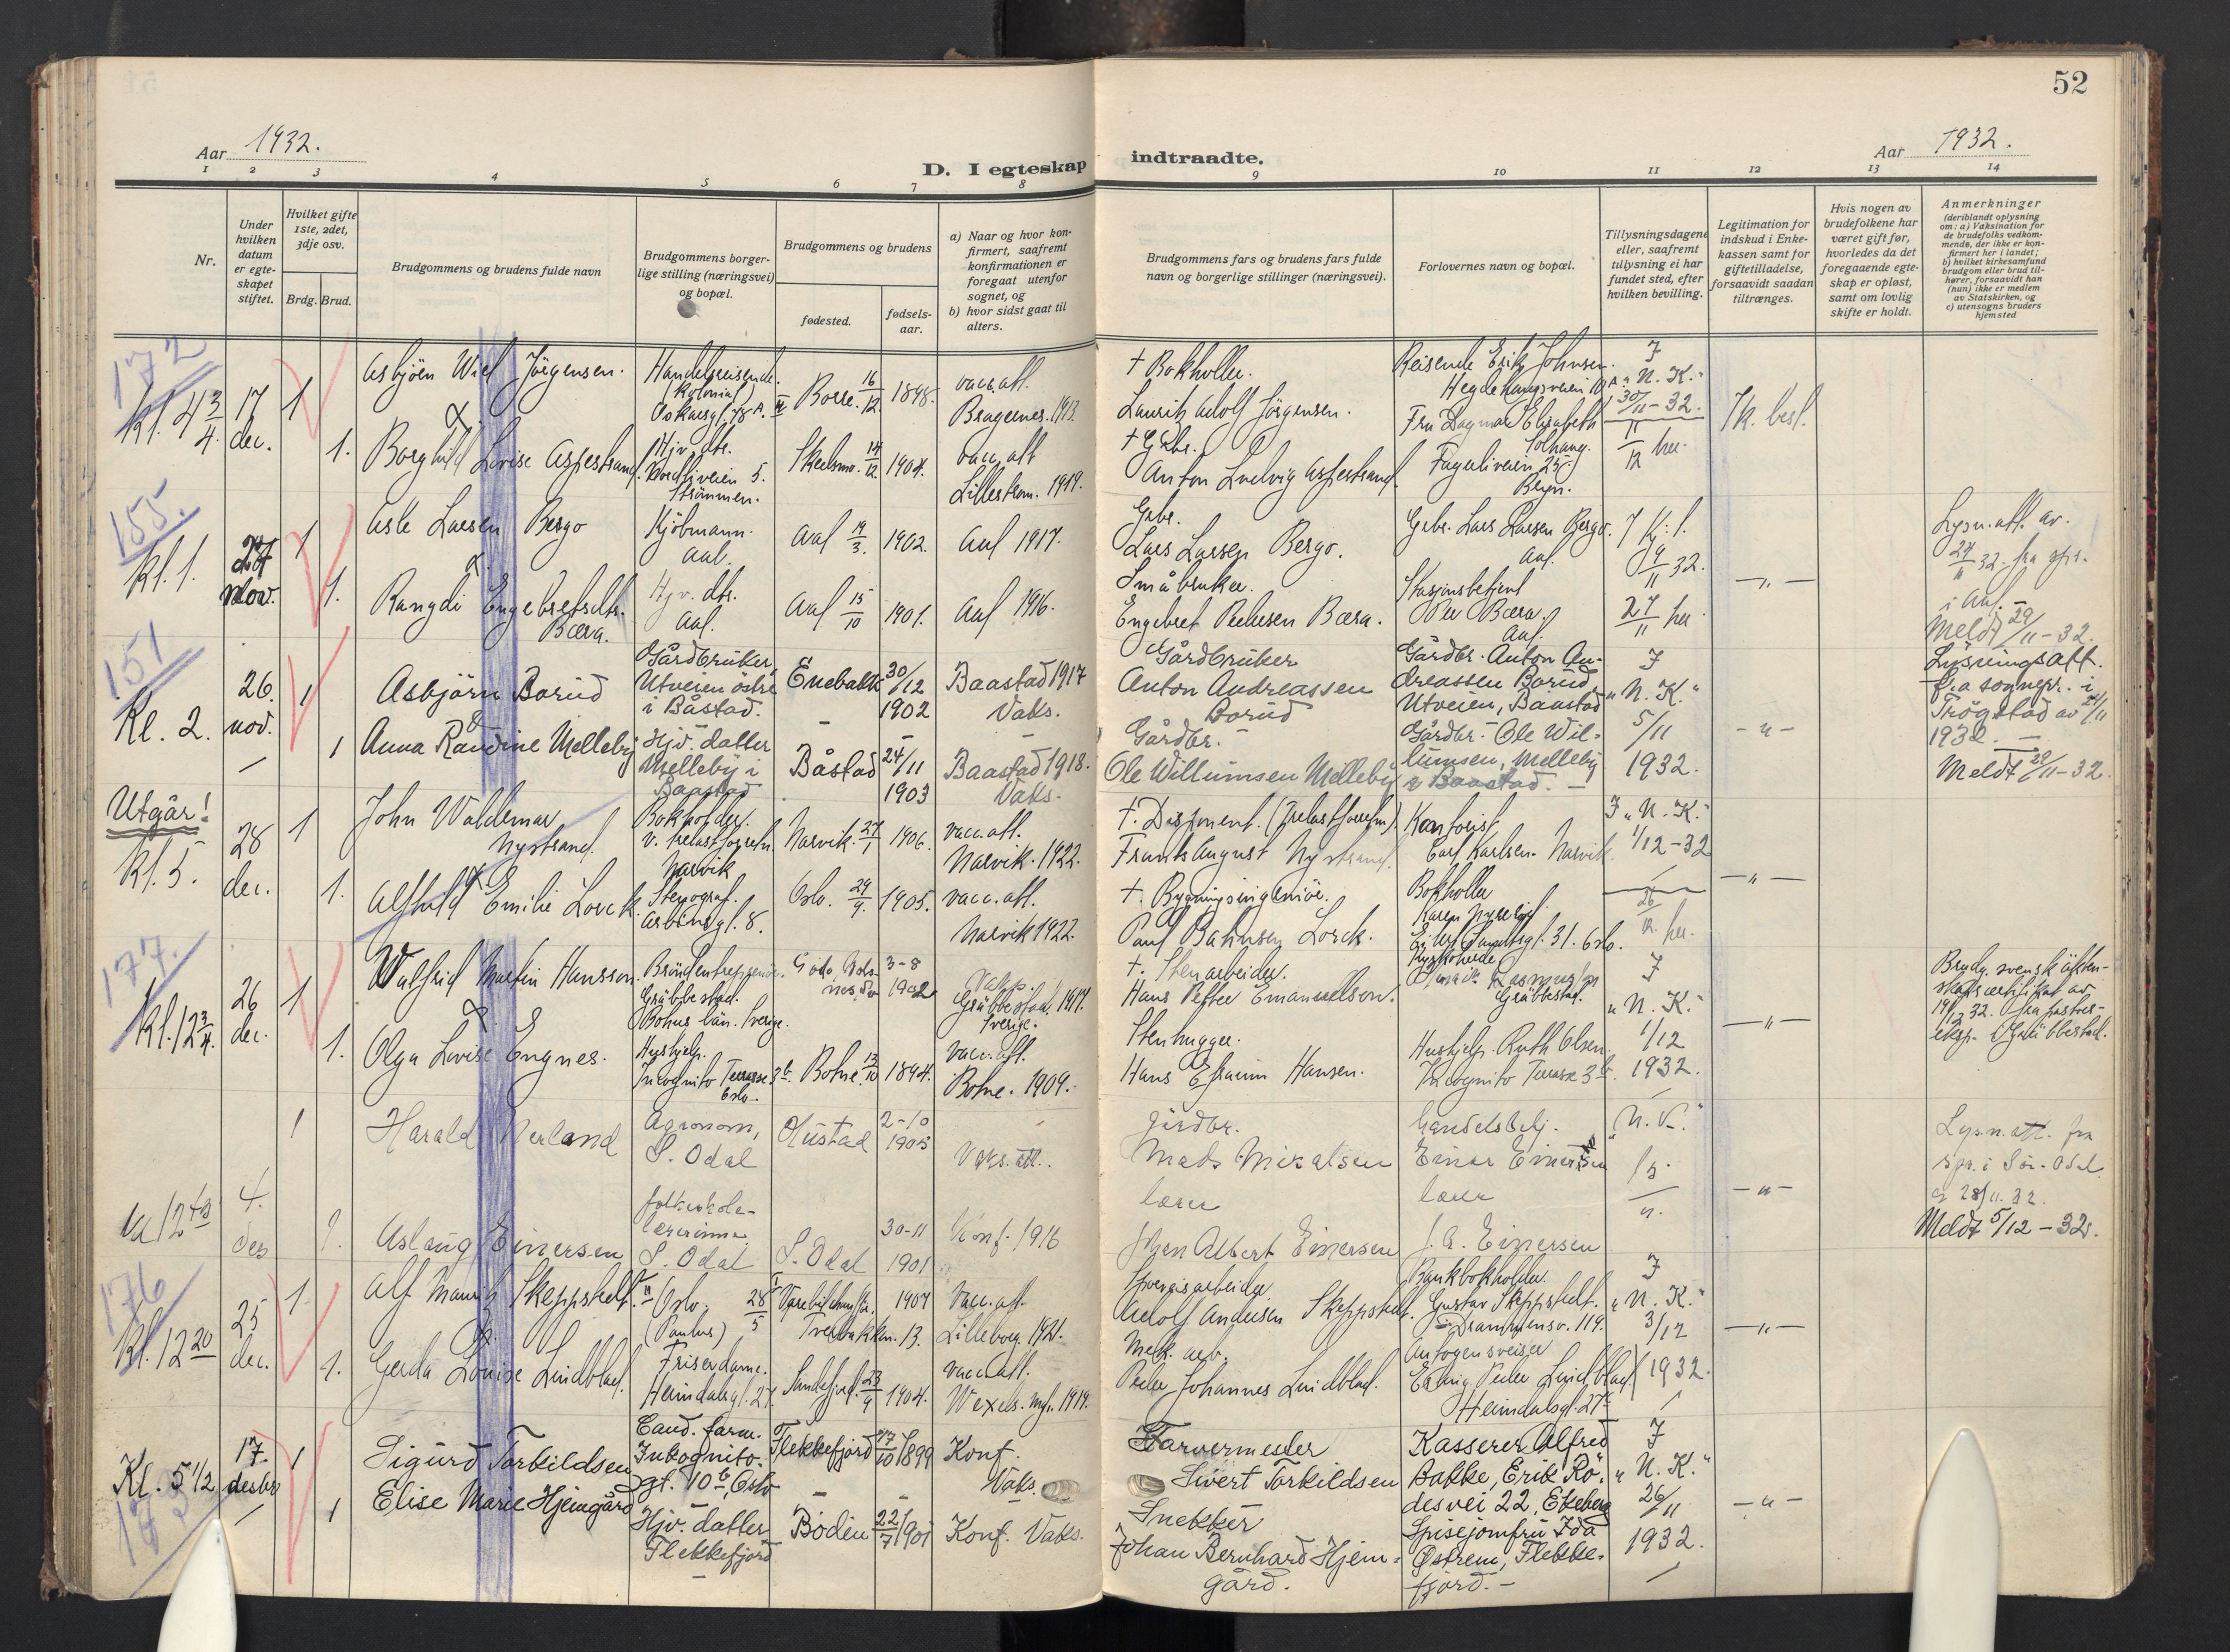 52
Aar 1932.
D. I egteskap indtraadte.
Aar 1932.
1 2 3 4 5 6 7 8 9 10 11 12 13 14
Nr.
Under
hvilken
datum
er egte-
skapet
stiftet.
Hvilket gifte
1ste, 2det,
3dje osv.
Brdg. Brud.
Brudgommens og brudens fulde navn
Brudgommens borger-
lige stilling (næringsvei)
og bopæl.
Brudgommens og brudens
fødested.
fødsels-
aar.
a) Naar og hvor kon-
firmert, saafremt
konfirmationen er
foregaat utenfor
sognet, og
b) hvor sidst gaat til
alters.
Brudgommens fars og brudens fars fulde
navn og borgerlige stillinger (næringsvei).
Forlovernes navn og bopæl.
Tillysningsdagene
eller, saafremt
tillysning ei har
fundet sted, efter
hvilken bevilling.
Legitimation for
indskud i Enke-
kassen samt for
giftetilladelse,
forsaavidt saadan
tiltrænges.
Hvis nogen av
brudefolkene har
været gift før,
hvorledes da det
foregaaende egte-
skap er opløst,
samt om lovlig
skifte er holdt.
Anmerkninger
(deriblandt oplysning
om: a) Vaksination for
de brudefolks vedkom-
mende, der ikke er kon-
firmert her i landet;
b) hvilket kirkesamfund
brudgom eller brud til-
hører, forsaavidt han
(hun) ikke er medlem
av Statskirken, og
c) utensogns bruders
hjemsted
172
kl. 4 3/4
17
dec.
1
1.
Asbjörn Wiel Jörgensen.
&
Borghild Lovise Aspestrand.
Handelsreisende.
(kolonial)
Oskarsgt. 78 A. II
Hjv. dtr.
Nordliveien 5.
Strömmen.
Borre. 16/12 1898.
Skedsmo. 14/12 1904.
vacc. att.
Bragernes. 1913.
vacc. att
Lilleström. 1919.
+ Bokholder.
Lauritz Adolf Jörgensen.
+ Gbr.
Anton Ludvig Aspestrand.
Reisende Erik Johnsen.
Hegdehaugsveien 10 A
Fru Dagmar Elisabeth
Solhaug.
Fagerliveien 25.
Bryn.
J
"N. K."
30/11-32.
11/12 her.
155.
kl. 1.
27
nov.
1
1.
Asle Larsen Bergo
&
Rangdi Engebretsdtr.
Bæra.
Kjöbmann.
Aal.
Hjv. dtr.
Aal.
Aal 19/3. 1902.
Aal 15/10 1901.
Aal 1917.
Aal 1916.
Gbr.
Lars Larsen Bergo.
Småbruker.
Engebret Pedersen Bæra.
Gbr. Lars Larsen Bergo.
Aal.
Stasjonsbetjent
Per Bæra.
Aal.
19/11 32.
27/11 her
— " —
Lysn. att. av.
24/11 32. fra spr.
i Aal. —
Meldt 29/11-32.
151
Kl. 2.
26.
nov.
1
1
Asbjörn Borud
&
Anna Randine Melleby
Gårdbruker,
Utveien östre
i Båstad.
Hjv. datter
Melleby i
Baastad
Enebakk 30/12 1902
Båstad 24/11 1903
Baastad 1917
Vaks.
Baastad 1918.
Vaks.
Gårdbruker
Anton Andreassen
Borud
Gårdbr.
Ole Willumsen Melleby
Gårdbr. Anton An-
dreassen Borud,
Utveien, Baastad
Gårdbr. Ole Wil-
lumsen, Melleby
i Baastad. —
J
"N. K."
5/11
1932.
— " —
Lysningsatt.
fra sognepr. i
Trögstad av 24/11
1932. —
Meldt 29/11-32.
Utgår!
kl. 5.
28
dec.
1
1.
John Waldemar
Nystrand.
&
Alfhild Emilie Lorck
Bokholder.
v. trelastforretn.
Narvik
Stenograf.
Arbinsgt. 8.
Narvik. 27/1 1906.
Oslo. 29/9. 1905.
vacc. att.
Narvik. 1922.
vacc. att.
Narvik 1922.
+. Disponent. (Trelastforretn.)
Frants August Nystrand.
+. Bygningsingeniör.
Paul Bahnsen Lorck.
Kontorist
Carl Karlsen. Narvik.
Bokholder
Eilert Sundtsgt. 31. Oslo.
J "N. K."
1/12-32
26/12. her.
— " —
177.
Kl. 12 3/4.
26
dec.
1
1.
Walfrid Martin Hansson.
&
Olga Lovise Engnes.
Bröndentreprenör.
Gräbbestad.
Bohus län. Sverige.
Hushjelp.
Incognito Terrasse 3 b.
Oslo.
3-8
1902
Botne. 13/10 1894.
Gräbbestad. 1917.
Sverige.
vacc. att.
Botne. 1909.
+. Stenarbeider.
Hans Petter Emanuelson.
Stenhugger.
Hans Efraim Hansen.
Gräbbestad.
Hushjelp. Ruth Olsen.
Incognito Terrasse 3 b.
J
"N. K."
1/12
1932.
— " —
Brudg. svensk äkten-
skapscertifikat av
19/12 32. fra pastors-
eksp. i Gräbbestad.
kl 12 45
4.
des
1
1.
Harald Nerland
Aslaug Einersen
Agronom,
S. Odal
folkeskole-
lærerinne
S. Odal
Hustad
S. Odal
2-10
1903
30-11
1901
Vaks. att.
Konf. 1916
gårdbr.
Mads Mikalsen
lærer
Johan Albert Einersen
handelsbetj.
Einar Einersen
lærer
J. A. Einersen
"N. K."
15/11.
— " —
Lysn. att. fra
spr. i Sör-Odal
av 28/11. 32.
Meldt 5/12-32.
176
Kl. 12 20
25
dec.
1.
1.
Alf Mauritz Skeppstedt.
&
Gerda Louise Lindblad.
Oslo.
(Paulus)
Friserdame.
Heimdalsgt. 27.
28/5
1907
Sandefjord. 23/9 1904.
Vacc. att.
Lilleborg. 1921.
vacc. att.
Wexels. mgh. 1919.
Sporveisarbeider.
Adolf Andersen Skeppstedt.
Mek. arb.
Peder Johannes Lindblad.
Bankbokholder.
Gustav Skeppstedt.
Drammensv. 119.
Autogensveiser
Erling Peder Lindblad
Heimdalsgt. 27
J
"N. K."
3/12
1932.
— " —
173
Kl. 5 1/2
17.
desbr.
1
1
Sigurd Torkildsen
Elise Marie Hjemgård
Cand. farm.
Inkognito-
gt. 10 b, Oslo
Hjv. datter
Flekkefjord
Flekkefjord 17/10 1899
Bodin 22/7 1901
Konf.
Vaks.
Konf. Vaks.
Farvermester
Sivert Torkildsen
Snekker
Johan Bernhard Hjem-
gård.
Kasserer Alfred
Bakke, Erik Rö-
desvei 22, Ekeberg
Spisejomfru Ida
Østrem, Flekke-
fjord. —
J
"N. K."
26/11
1932.
— " —